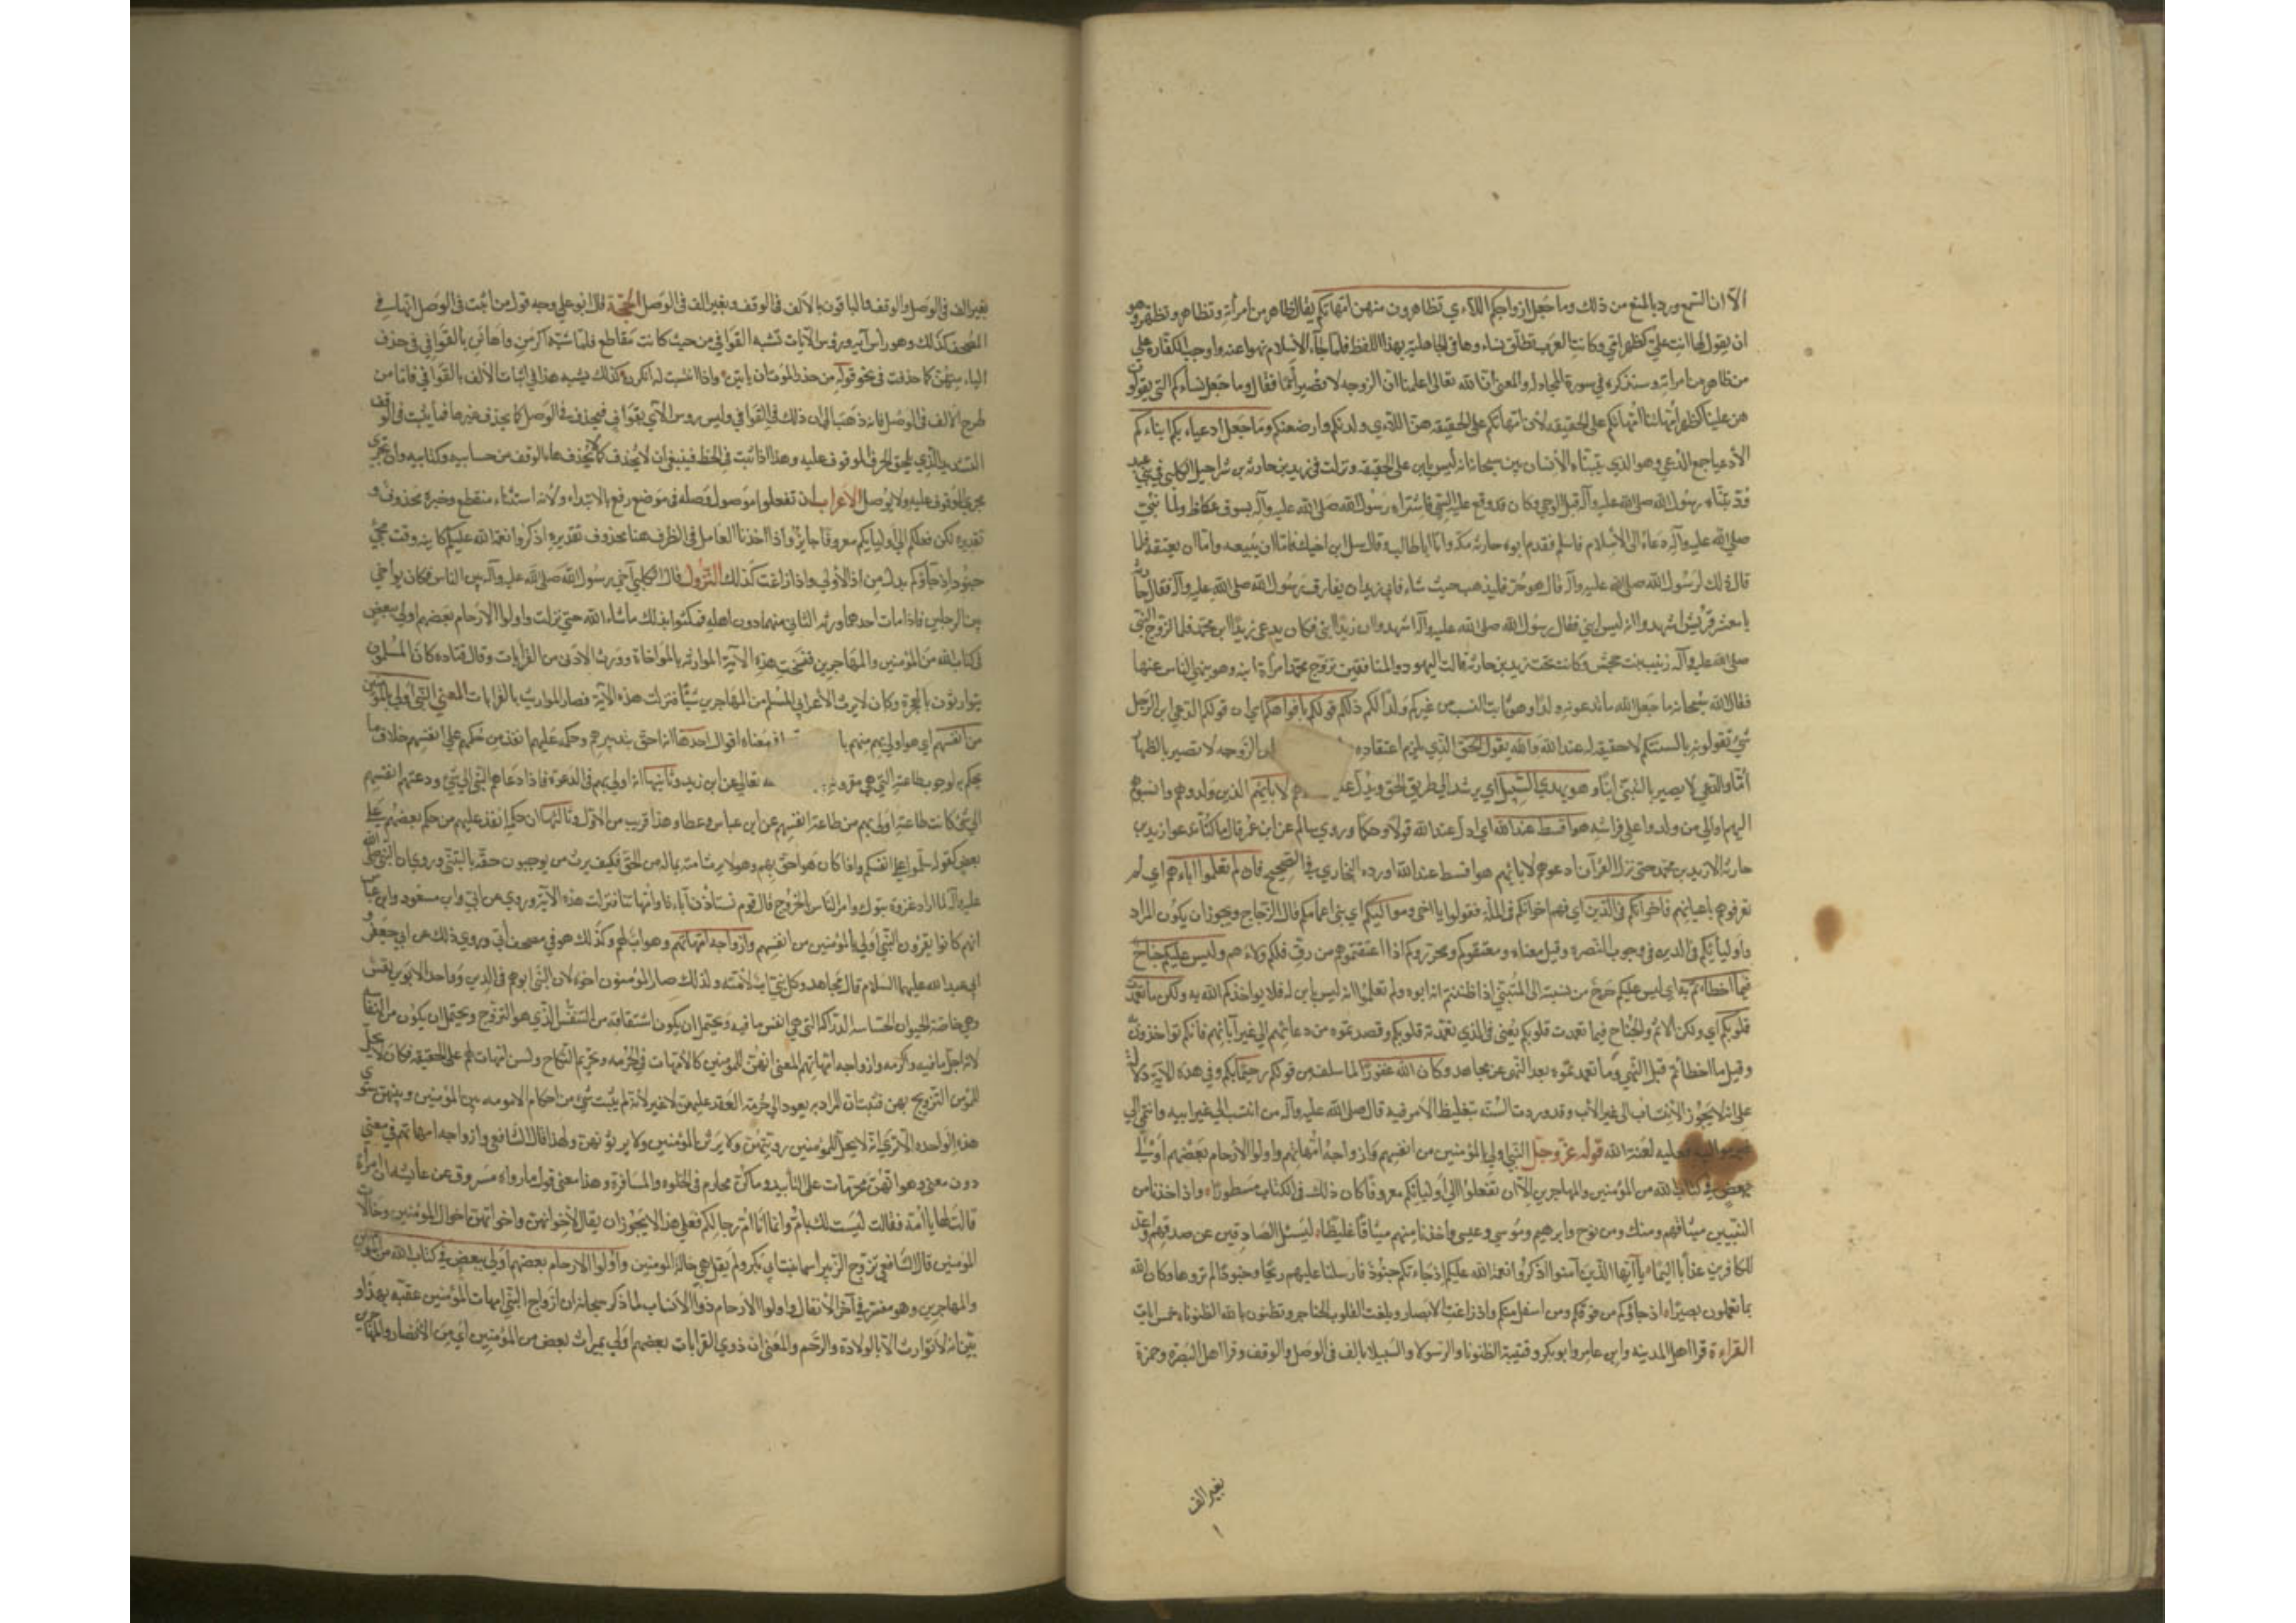 الا ان الشرع ورد بالمنع من ذلك وما جعل ازواجكم اللاءي تظاهرون منهن امهاتكم يقال ظاهر من امرأته وتظاهر وتظهر وهو
ان يقول لها انت علي كظهر امي وكانت العرب تطلق نساءها في الجاهلية بهذا اللفظ فلما جاء الاسلام نهوا عنه واوجب الكفارة علي
من ظاهر من امراته وسنذكره في سورة المجادله والمعنى ان الله تعالى اعلمنا ان الزوجه لا تصير أما فقال وما جعل نساءكم التي يقولون
هن علينا كظهر امهاتنا امهاتكم على الحقيقه لأن امهاتكم على الحقيقه هن اللاءي ولدنكم وارضعنكم وما جعل ادعياءكم ابناءكم
الأدعيا جمع الدعي وهو الذي يتبناه الأنسان بين سبحانه انه ليس بابن على الحقيقه ونزلت في زيد بن حارثه بن شراحيل الكلبي من بني عبد
ود تبناه رسول الله صلى الله عليه وآله قبل الوحي وكان قد وقع عليه السبي فاشتراه رسول الله صلى الله عليه وآله بسوق عكاظ ولما نبئ
صلى الله عليه وآله دعاه الى الأسلام فاسلم فقدم ابوه حارثه مكه واتا ابا طالب وقال سل ابن اخيك فاما ان يبيعه واما ان يعتقه فلما
قال ذلك لرسول الله صلى الله عليه وآله قال هو حر فليذهب حيث شاء فابى زيد ان يفارق رسول الله صلى الله عليه وآله فقال حارثه
يا معشر قريش اشهدوا انه ليس ابني فقال رسول الله صلى الله عليه وآله اشهدوا ان زيدا ابني فكان يدعى زيد ابن محمد فلما تزوج النبي
صلى الله عليه وآله زينب بنت جحش وكانت تحت زيد بن حارثه قالت اليهود والمنافقين تزوج محمد امرأة ابنه وهو ينهى الناس عنها
فقال الله سبحانه ما جعل الله ما تدعونه ولدا وهو ثابت النسب من غيركم ولدا لكم ذلكم قولكم بافواهكم اي ان قولكم الدعي ابن الرجل
شيء تقولونه بالسنتكم لا حقيقه له عند الله والله يقول الحق الذي يلزم اعتقاده ان الزوجه لا تصير بالظهار
أما والدعي لا يصير بالتبني ابنا وهو يهدي السبيل اي يرشد الى طريق الحق ويدل عليه لابائهم الذين ولدوهم وانسبوهم
اليهم او الى من ولدوا على فراشه هو اقسط عند الله اي اعدل عند الله قولا وحكما وروي سالم عن ابن عمر قال ما كنا ندعوا زيد بن
حارثه الا زيد بن محمد حتى نزل القرآن ادعوهم لابائهم هو اقسط عند الله اورده البخاري في الصحيح فان لم تعلموا اباءهم اي لم
تعرفوهم باعيانهم فاخوانكم في الدين اي فهم اخوانكم في الملة فقولوا يا اخي ومواليكم اي بني اعمامكم قال الزجاج ويجوز ان يكون المراد
واولياءكم في الدين في وجوب النصره وقيل معناه ومعتقوكم ومحرروكم اذا اعتقتموهم من رق فلكم ولاءهم وليس عليكم جناح
فيما اخطأتم به اي ليس عليكم حرج من نسبته الى المتبني اذا ظننتم انه ابوه ولم تعلموا انه ليس بابن له فلا يواخذكم الله به ولكن ما تعمدت
قلوبكم اي ولكن الاثم والجناح فيما تعمدت قلوبكم يعني في الذي تعمدته قلوبكم وقصدتموه من دعائهم الى غير آبائهم فانكم تواخذون به
وقيل ما اخطأتم قبل النهي وما تعمدتموه بعد النهي عن مجاهد وكان الله غفورا لما سلف من قولكم رحيما بكم وفي هذه الآية دلالة
على انه لا يجوز الأنتساب الى غير الأب وقد وردت السنه بتغليظ الأمر فيه قال صلى الله عليه وآله من انتسب الى غير ابيه وانتمى الي
غير مواليه فعليه لعنة الله قوله عز وجل النبي اولى بالمؤمنين من انفسهم وازواجه امهاتهم واولوا الأرحام بعضهم اولى
ببعض في كتاب الله من المؤمنين والمهاجرين الا ان تفعلوا الى اوليائكم معروفا كان ذلك في الكتاب مسطورا واذ اخذنا من
النبيين ميثاقهم ومنك ومن نوح وابرهيم وموسي وعيسى واخذنا منهم ميثاقا غليظا ليسئل الصادقين عن صدقهم واعد
للكافرين عذابا اليما يا ايها الذين آمنوا اذكروا نعمة الله عليكم اذ جاءتكم جنود فارسلنا عليهم ريحا وجنودا لم تروها وكان الله
بما تعملون بصيرا اذ جاؤكم من فوقكم ومن اسفل منكم واذ زاغت الابصار وبلغت القلوب الحناجر وتظنون بالله الظنونا خمس ايات
القراءة قرا اهل المدينه وابن عامر وابو بكر وقتيبة الظنونا والرسولا والسبيلا بالف في الوصل والوقف وقرا اهل البصرة وحمزة
بغير الف
بغير الف في الوصل والوقف والباقون بالألف في الوقف وبغير الف في الوصل الحجة قال ابو علي وجه قول من اثبت في الوصل انها في
المصحف كذلك وهو رأس آيه ورؤس الآيات تشبه القوافي من حيث كانت مقاطع فلما شبه اكرمن واهانن بالقوافي في حذف
الياء منهن كما حذفت في نحو قوله من حذر الموت ان ياتين واذا ما انتسبت له انكرن كذلك يشبه هذا في اثبات الألف بالقوافي فاما من
طرح الألف في الوصل فانه ذهب الى ان ذلك في القوافي وليس رؤس الآي بقوافي فيحذف في الوصل كما يحذف غيرها فيما يثبت في الوقف
التشديد الذي يلحق الحرف الموقوف عليه وهذا اذا ثبت في الخط فينبغي ان لا يحذف كما لا تحذف هاء الوقف من حسابيه وكتابيه وان تجري
مجرى الموقوف عليه ولا يوصل الاعراب ان تفعلوا موصول وصله في موضع رفع بالابتداء ولانه استثناء منقطع وخبره محذوف و
تقديره لكن فعلكم الى اوليائكم معروفا جايز واذ اخذنا العامل في الظرف هنا محذوف تقديره اذكروا نعمة الله عليكم كاينه وقت مجئ
جنود اذ جاؤكم بدل من اذ الأولى واذ زاغت كذلك النزول قال الكلبي آخى رسول الله صلى الله عليه وآله بين الناس فكان يواخي
بين الرجلين فاذا مات احدهما ورثه الثاني منهما دون اهله فمكثوا بذلك ما شاء الله حتى نزلت واولوا الأرحام بعضهم اولى ببعض
في كتاب الله من المؤمنين والمهاجرين فنسخت هذه الآية الموارثه بالمواخاة وورث الادنى من القرابات وقال قتاده كان المسلمون
يتوارثون بالهجرة وكان لا يرث الأعرابي المسلم من المهاجرين شيئا فنزلت هذه الآية فصار المواريث بالقرابات المعنى النبي اولى بالمؤمنين
من انفسهم اي هو اولى بهم منهم با معناه اقوال احدها انه احق بتدبيرهم وحكمه عليهم انفذ من حكمهم على انفسهم خلاف ما
يحكم به لوجوب طاعته التي هي مقرونه تعالى عن ابن زيد وثانيها انه اولى بهم في الدعوة فاذا دعاهم النبي الى شيء ودعتهم انفسهم
الى شيء كانت طاعته اولى بهم من طاعة انفسهم عن ابن عباس وعطا وهذا قريب من الأول وثالثها ان حكمه انفذ عليهم من حكم بعضهم على
بعض كقوله سلموا على انفسكم واذا كان هو احق بهم وهو لا يرث امته بماله من الحق فكيف يرث من يوجبون حقه بالتبني وروي ان النبي صلى الله
عليه وآله لما اراد غزوة تبوك وامر الناس بالخروج قال قوم نستاذن آباءنا وامهاتنا فنزلت هذه الآية وروي عن ابي وابن مسعود وابن عباس
انهم كانوا يقرؤن النبي اولى بالمؤمنين من انفسهم وازواجه امهاتهم وهو اب لهم وكذلك هو في مصحف أبي وروي ذلك عن ابي جعفر و
ابي عبد الله عليهما السلام قال مجاهد وكل نبي اب لأمته ولذلك صار المؤمنون اخوة لان النبي ابوهم في الدين وواحد الانفس نفس
وهي خاصة الحيوان الحساسه الدراكه التي هي انفس ما فيه ويحتمل ان يكون اشتقاقه من التنفس الذي هو التروح ويحتمل ان يكون من النفاسه
لانه اجل ما فيه واكرمه وازواجه امهاتهم المعنى انهن للمؤمنين كالأمهات في الحرمه وتحريم النكاح ولسن امهات لهم على الحقيقه فكان لا يحل
للمؤمن التزويج بهن فثبت ان المراد به يعود الى حرمة العقد عليهن لا غير لأنه لم يثبت شيء من احكام الامومه بين المؤمنين وبينهن سوى
هذه الواحده الا ترى انه لا يحل للمؤمنين رويتهن ولا يرثن المؤمنين ولا يرثونهن ولهذا قال الشافعي وازواجه امهاتهم في معني
دون معنى وهو انهن محرمات على التأبيد وما كن محارم في الخلوه والمسافرة وهذا معنى قول ما رواه مسروق عن عايشه ان امرأة
قالت لها يا امه فقالت ليست لك بام وانما انا ام رجالكم فعلى هذا لا يجوز ان يقال لأخوانهن واخواتهن اخوال المؤمنين وخالات
المؤمنين قال الشافعي تزوج الزبير اسما بنت ابي بكر ولم يقل هي خالة المؤمنين واولوا الارحام بعضهم اولى ببعض في كتاب الله من المؤمنين
والمهاجرين وهو مفسر في آخر الأنفال واولوا الأرحام ذووا الأنساب لما ذكر سبحانه ان ازواج النبي امهات المؤمنين عقبه بهذا و
بين انه لا توارث الا بالولادة والرحم والمعنى ان ذوي القرابات بعضهم اولى بميراث بعض من المؤمنين اي من الانصار والمهاجرين